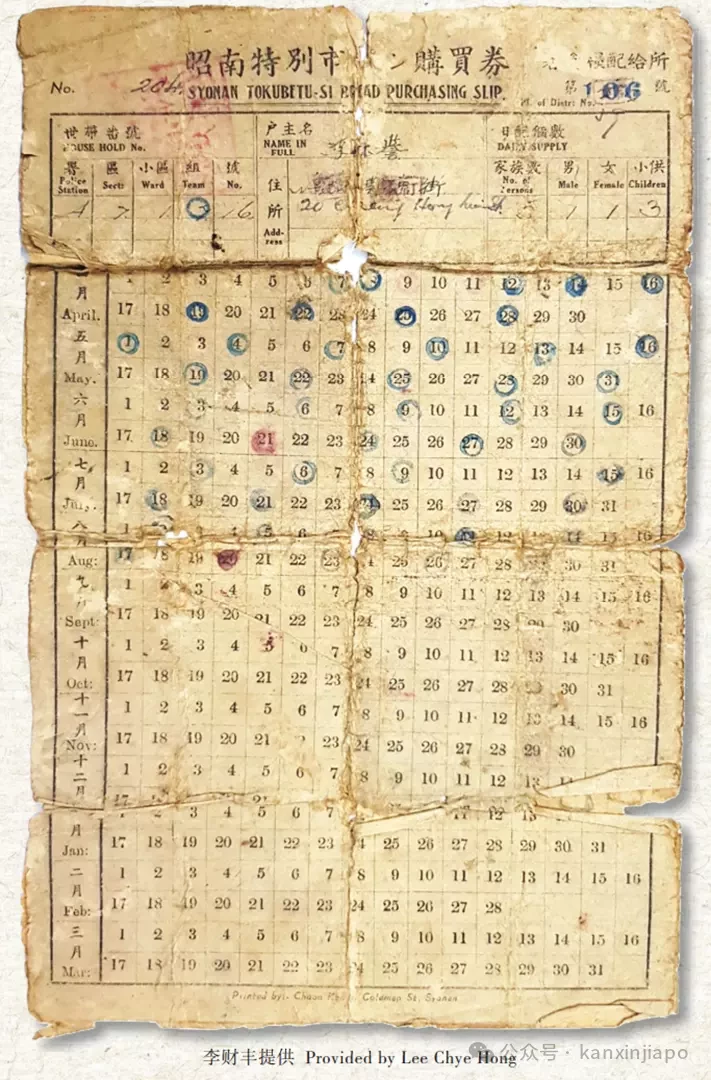 昭南特別市 ン購買券
配給所
No. 204
SYONAN TOKUBETU-SI BREAD PURCHASING SLIP.
第 106 號
of Distri No.
世帶番號
HOUSE HOLD No.
戶主名
NAME IN FULL
李
日配個數
DAILY SUPPLY
署 區 小區 組 號
Police Station Sectr Ward Team No.
住所
Address
家族數 男 女 小供
No. of Persons Male Female Children
A 7 1 3 16
20 Hong
5 1 1 3
月
3 4 5 6 7 9 10 11 12 13 14 15 16
April. 17 18 19 20 21 22 23 24 25 26 27 28 29 30
五月
1 2 3 4 5 6 7 8 9 10 11 12 13 14 15 16
May. 17 18 19 20 21 22 23 24 25 26 27 28 29 30 31
六月
1 2 3 4 5 6 7 8 9 10 11 12 13 14 15 16
June. 17 18 19 20 21 22 23 24 25 26 27 28 29 30
七月
1 2 3 4 5 6 7 8 9 10 11 12 13 14 15 16
July. 17 18 19 20 21 22 23 24 25 26 27 28 29 30 31
八月
1 4 5 6 10 11 12 14 15 16
Aug: 17 18 19 20 21 22 23 24 25 26 27 28 29 30 31
九月
1 2 3 4 5 6 7 8 9 10 11 12 13 14 15 16
Sept: 17 18 19 20 21 22 23 24 25 26 27 28 29 30
十月
1 2 3 4 5 6 7 8 9 10 11 12 13 14 15 16
Oct: 17 18 19 20 21 22 23 24 25 26 27 28 29 30 31
十一月
1 2 3 4 5 6 7 8 9 10 11 12 13 14 15 16
Nov: 17 18 19 20 21 23 24 25 26 27 28 29 30
十二月
1 2 3 4 5 6 7 8 9 10 11 12 13
17 18 21
月
2 3 4 5 6 7 11 12 13
Jan: 17 18 19 20 21 22 23 24 25 26 27 28 29 30 31
二月
1 2 3 4 5 6 7 8 9 10 11 12 13 14 15 16
Feb: 17 18 19 20 21 22 23 24 25 26 27 28
三月
1 2 3 4 5 6 7 8 9 10 11 12 13 14 15 16
Mar: 17 18 19 20 21 22 23 24 25 26 27 28 29 30 31
Printed by:- Coleman St, Syonan
李财丰提供 Provided by Lee Chye Hong
公众号 · kanxinjiapo